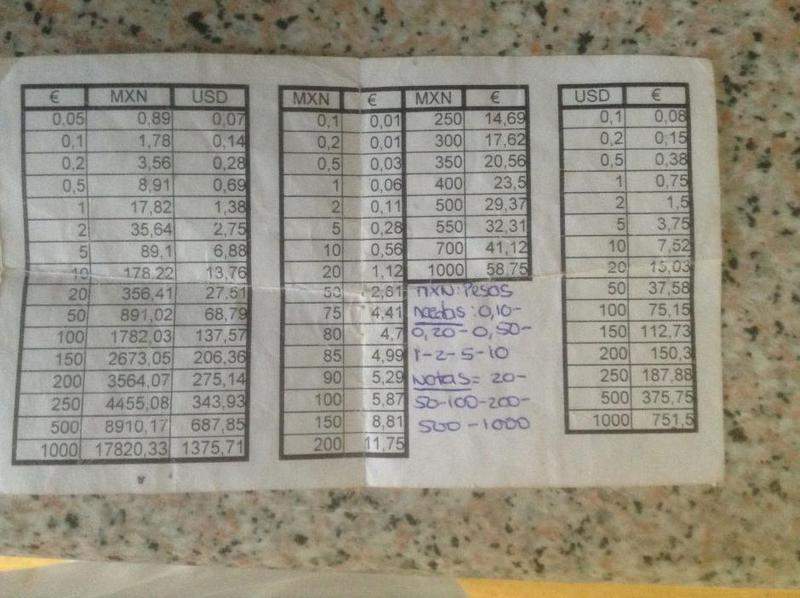 € MXN USD
0,05 0,89 0,07
0,1 1,78 0,14
0,2 3,56 0,28
0,5 8,91 0,69
1 17,82 1,38
2 35,64 2,75
5 89,1 6,88
10 178,22 13,76
20 356,41 27,51
50 891,02 68,79
100 1782,03 137,57
150 2673,05 206,36
200 3564,07 275,14
250 4455,08 343,93
500 8910,17 687,85
1000 17820,33 1375,71
MXN €
0,1 0,01
0,2 0,01
0,5 0,03
1 0,06
2 0,11
5 0,28
10 0,56
20 1,12
50 2,81
75 4,41
80 4,7
85 4,99
90 5,29
100 5,87
150 8,81
200 11,75
MXN €
250 14,69
300 17,62
350 20,56
400 23,5
500 29,37
550 32,31
700 41,12
1000 58,75
MXN: Pesos
: 0,10-
0,20-0,50-
1-2-5-10
Notas= 20-
50-100-200-
500-1000
USD €
0,1 0,08
0,2 0,15
0,5 0,38
1 0,75
2 1,5
5 3,75
10 7,52
20 15,03
50 37,58
100 75,15
150 112,73
200 150,3
250 187,88
500 375,75
1000 751,5